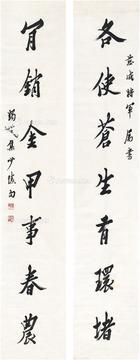 將軍屬書
各使蒼生有環堵
肎銷金甲事春農
集少陵句